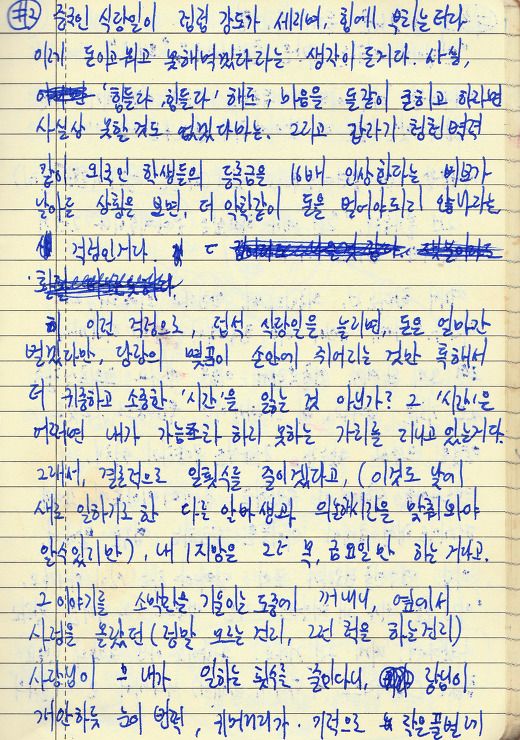 #2 중국인 식당일이 점점 강도가 세지며, 힘에 부치는터라
이게 돈이고 뭐고 못해먹겠다라는 생각이 든거다. 사실,
'힘들다, 힘들다' 해도, 마음을 돌같이 먹고 하라면
사실상 못할것도 없겠다마는. 그리고 갑자기 청천벽력
같이 외국인 학생들의 등록금을 16배 인상한다는 메모가
날아든 상황을 보면, 더 악착같이 돈을 벌어야되지 않나라는
걱정인거다.
이런 걱정으로, 덥석 식당일을 늘리면, 돈은 얼마간
벌겠다만, 당장의 몇푼이 손안에 쥐어지는 것만 혹해서
더 귀중하고 소중한 '시간'을 잃는 것 아닌가? 그 '시간'은
어쩌면 내가 가늠조차 하지 못하는 가치를 지니고 있는거다.
그래서, 결론적으로 일횟수를 줄이겠다고, (이것도 낼에
새로 일하기로 한 다른 알바생과 의논해시간을 맞춰봐야
알수있지만), 내 1지망은 목, 금요일만 하는 거다고.
그 이야기를 소박한을 기울이는 도중에 꺼내니, 옆에서
사정을 몰랐던 (정말 모르는건지, 그런 척을 하는건지)
사장님이 내가 일하는 횟수를 줄인다니, 장님이
개안하듯 눈이 번쩍, 귀머거리가 기적으로